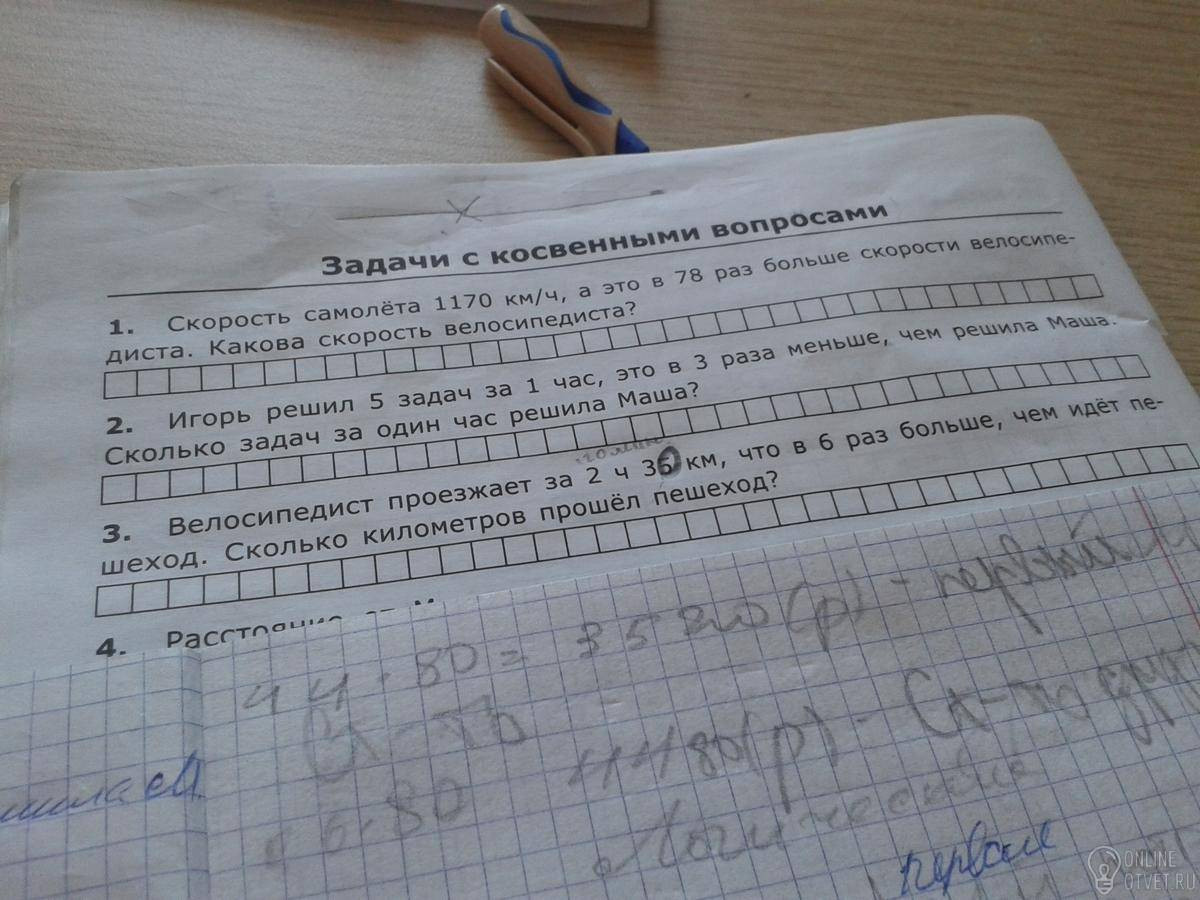 Задачи с косвенными вопросами
1. Скорость самолёта 1170 км/ч, а это в 78 раз больше скорости велосипе-
диста. Какова скорость велосипедиста?
2. Игорь решил 5 задач за 1 час, это в 3 раза меньше, чем решила Маша.
Сколько задач за один час решила Маша?
3. Велосипедист проезжает за 2 ч 30 км, что в 6 раз больше, чем идёт пе-
шеход. Сколько километров прошёл пешеход?
4. Расстояние от
44·80= (р) - первый
Ст-ть
4480(р) - Ст-ть
·80
первая
ONLINE
OTVET.RU